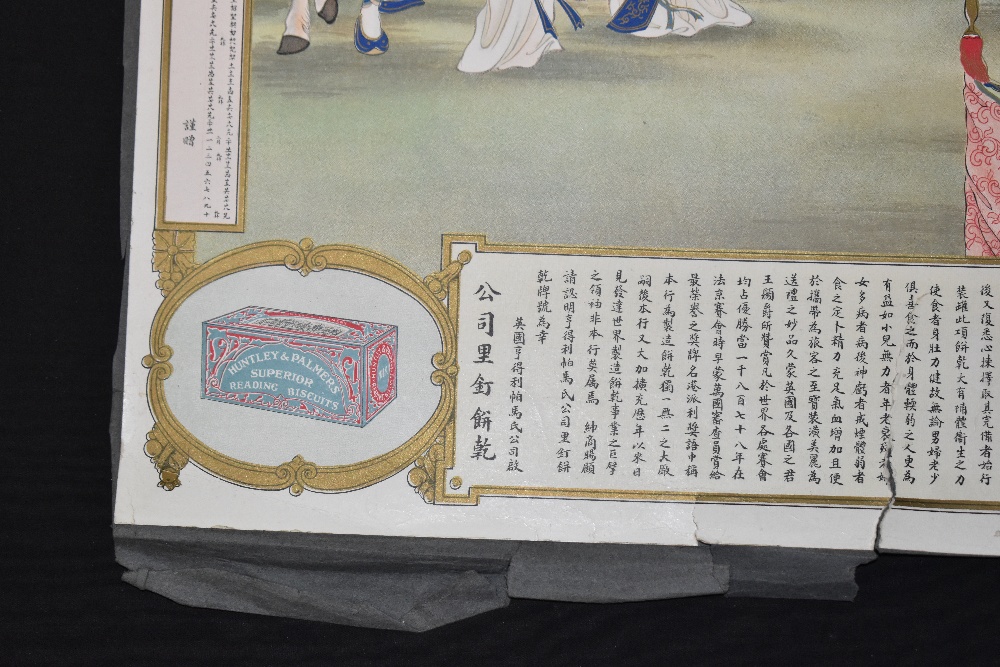 後又復悉心揀擇最具完備者始行
裝罐此項餅乾大有補體衞生之力
使食者身壯力健故無論男婦老少
俱喜食之而於身體輭弱之人更為
有益如小兒無力者年老衰
女多病者病後神虧者戒煙體弱者
食之定卜精力充足氣血增加且便
於攜帶為旅客之至寶裝潢美麗為
送禮之妙品久蒙英國及各國之君
王頒爵所贊賞凡於世界各處賽會
均占優勝當一千八百七十八年在
法京賽會時早蒙萬國審查員賞給
最榮譽之獎牌名港派利獎語中稱
本行為製造餅乾獨一無二之大廠
嗣後本行又大加擴充歷年以來日
見發達世界製造餅乾事業之巨擘
之領袖非本行莫屬焉 紳商賜顧
請認明亨得利帕馬氏公司里釘餅
乾牌號為幸
英國亨得利帕馬氏公司啟
公司里釘餅乾
謹贈
HUNTLEY & PALMERS
SUPERIOR
READING
BISCUITS